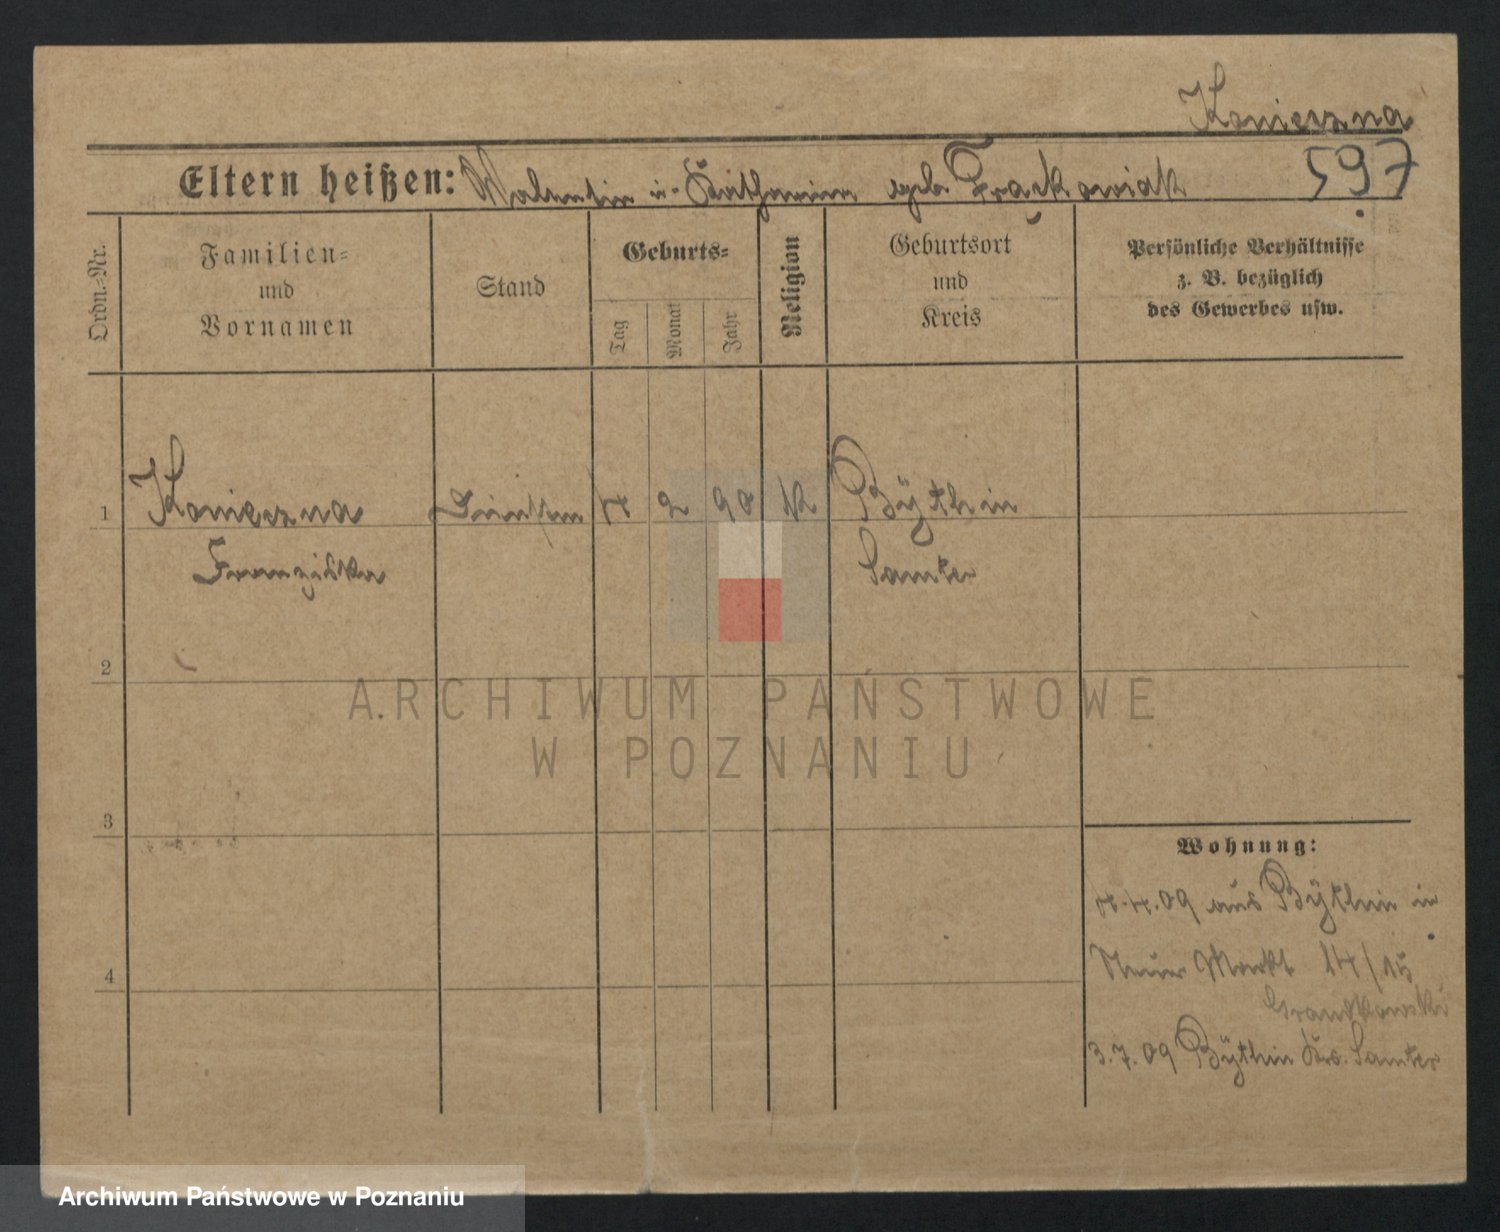 Konieczna
597
Eltern heißen: Valentin u. Katharina geb. Frackowiak
Ordn.-Nr.
Familien-
und
Vornamen
Stand
Geburts-
Tag
Monat
Jahr
Religion
Geburtsort
und
Kreis
Persönliche Verhältnisse
z. B. bezüglich
des Gewerbes usw.
1 Konieczna 4 2 90 K Bythin
Franziska Samter
2
3
4
Wohnung:
4.4.09 aus Bythin in
Neuer Markt 14/15
3.7.09 Bythin Krs. Samter
ARCHIWUM PAŃSTWOWE
W POZNANIU
Archiwum Państwowe w Poznaniu